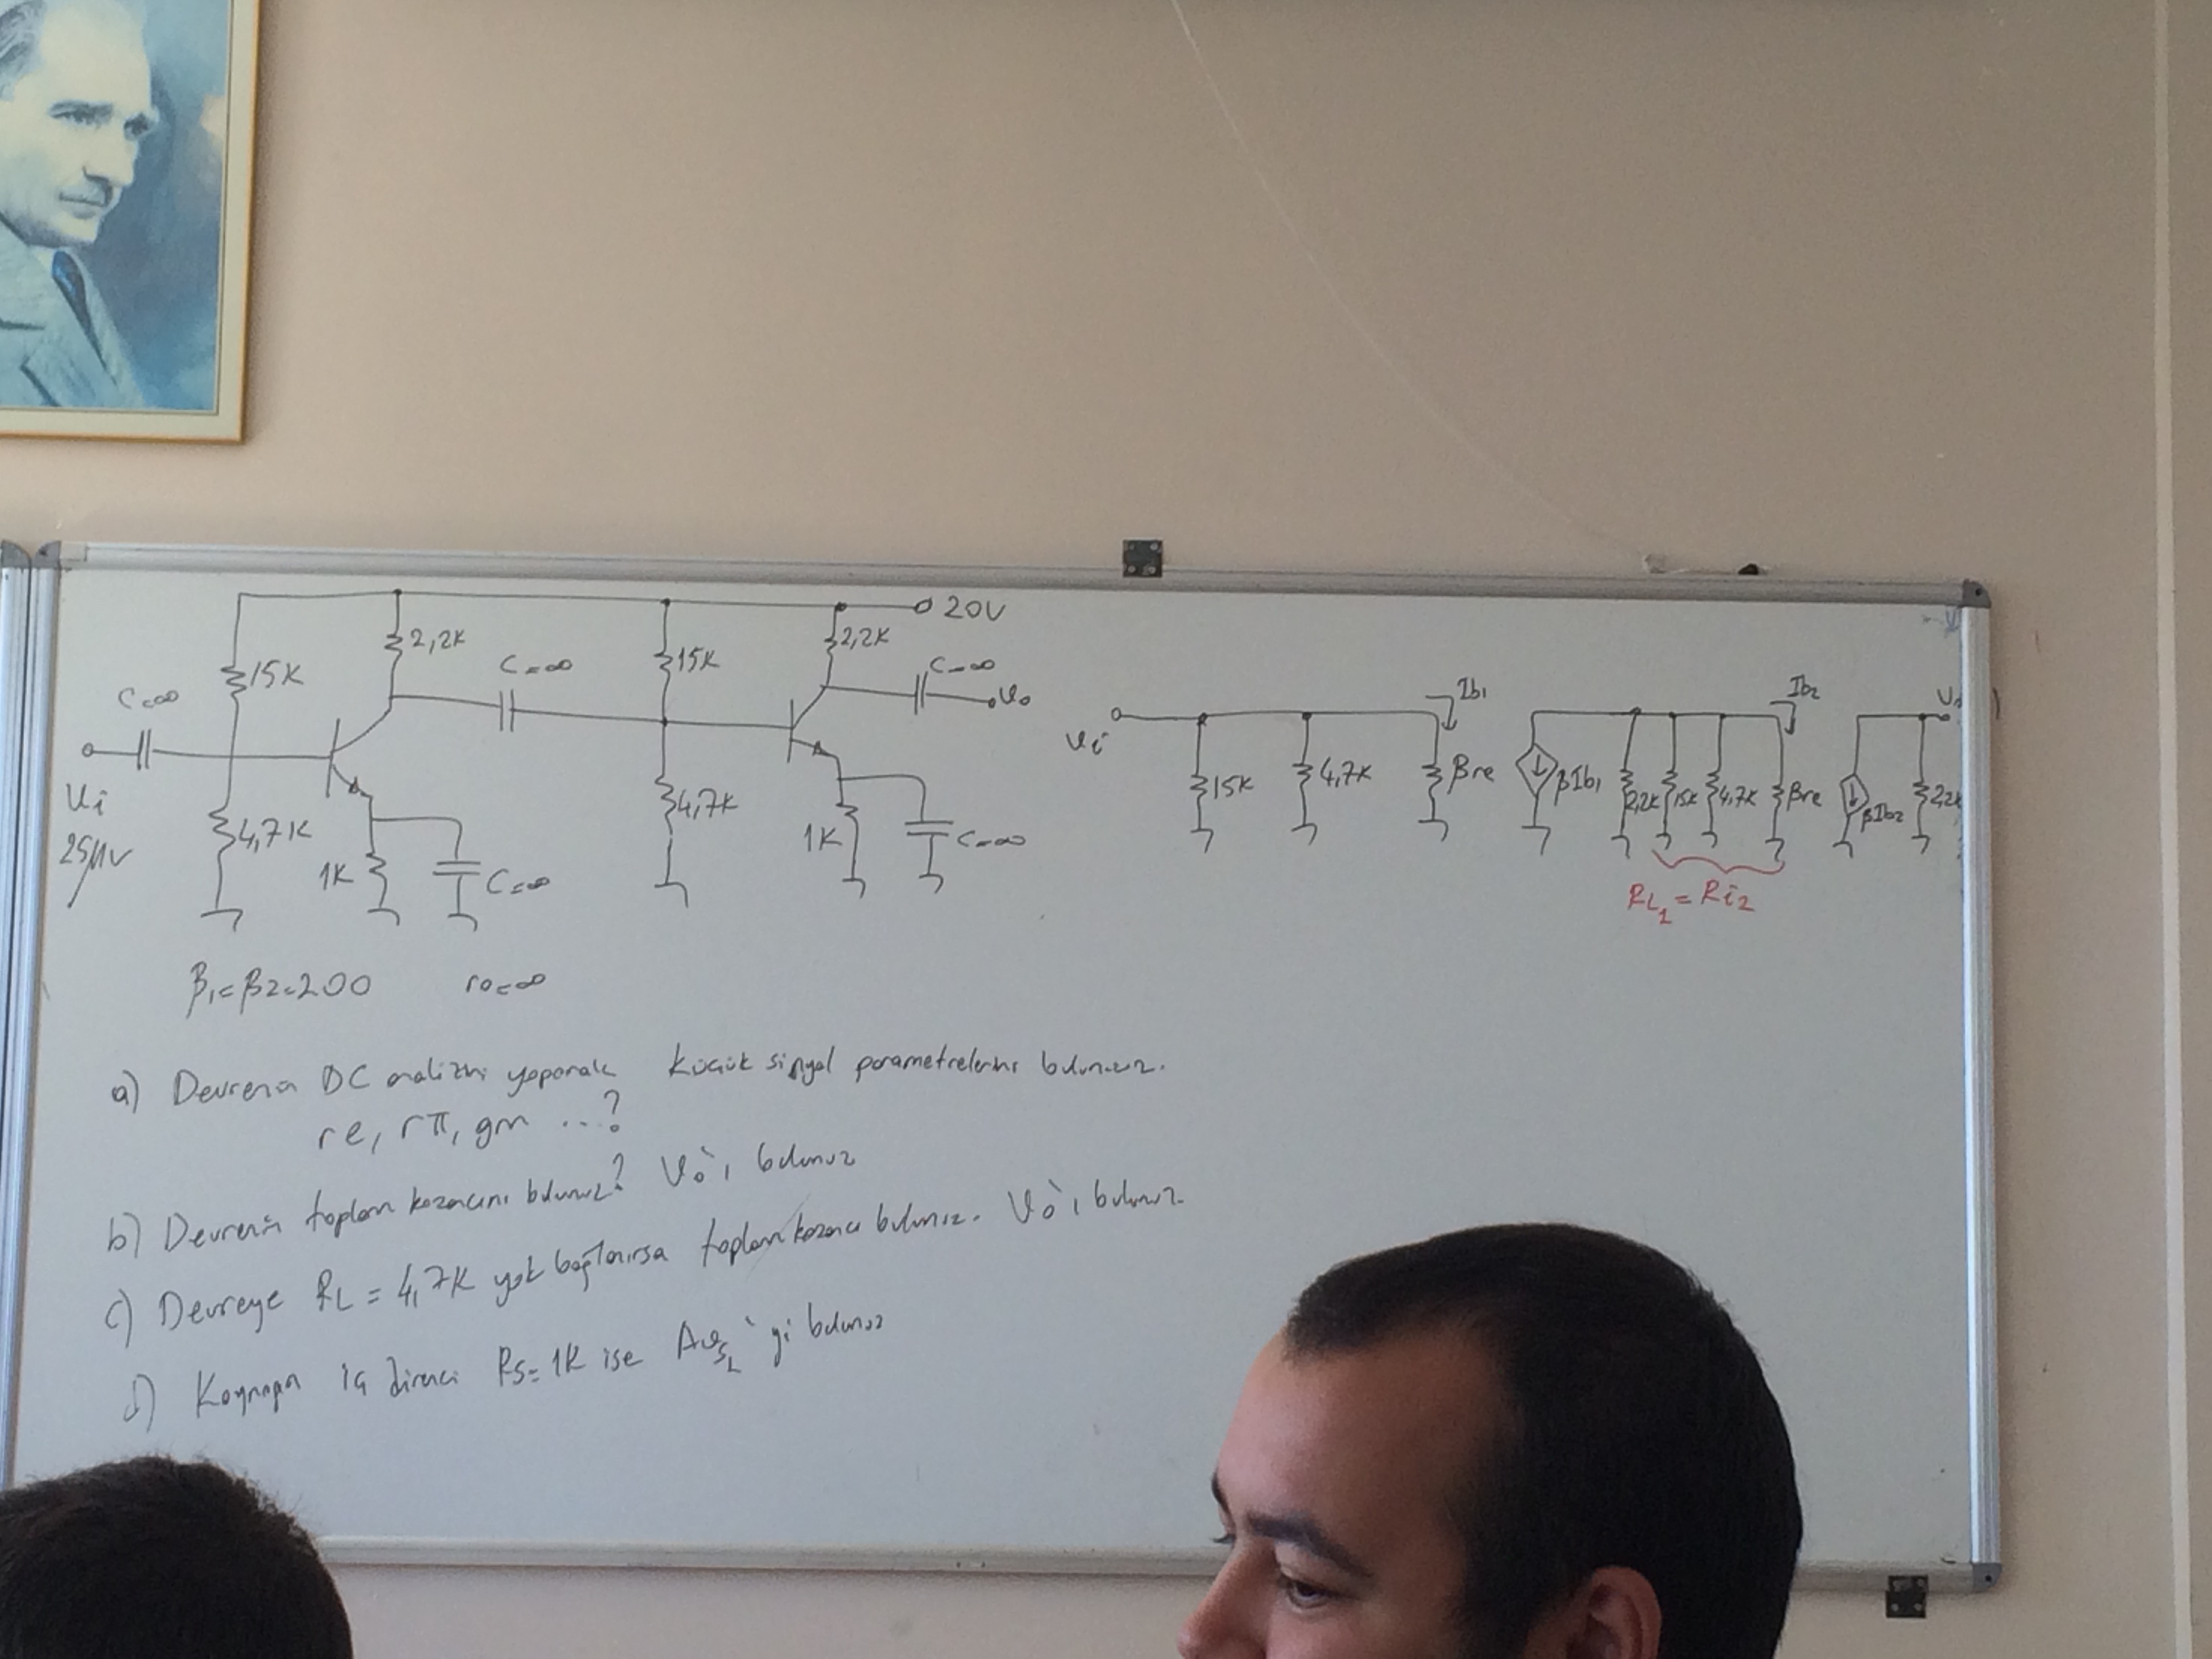 20V
2,2K
15K
2,2K
15K
C=∞
C=∞
C=∞
Vo
Vi
25μV
4,7K
1K
C=∞
4,7K
1K
C=∞
β1=β2=200 ro=∞
Vi
15K
4,7K
Ib1
βre
βIb1
2,2K
15K
4,7K
Ib2
βre
βIb2
2,2K
RL1 = Ri2
a) Devrenin DC analizini yaparak küçük sinyal parametrelerini bulunuz.
re, rπ, gm ...?
b) Devrenin toplam kazancını bulunuz? Vo'ı bulunuz
c) Devreye RL = 4,7K yük bağlanırsa toplam kazancı bulunuz. Vo'ı bulunuz.
d) Kaynağın iç direnci RS=1K ise AvSL'yi bulunuz